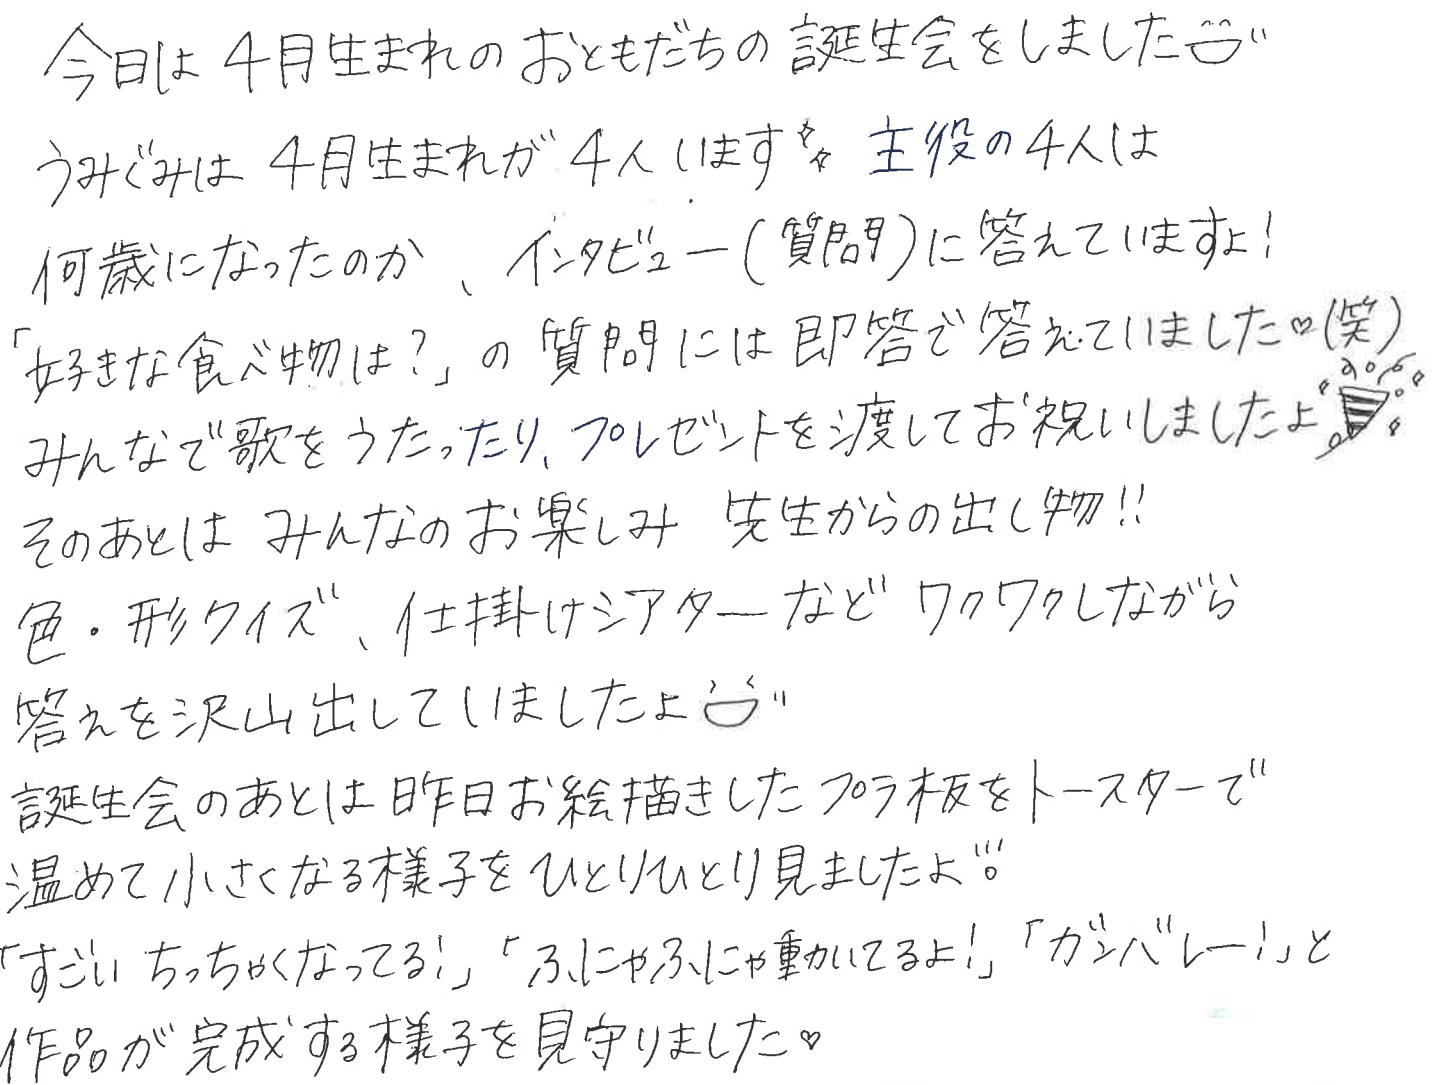 今日は4月生まれのおともだちの誕生会をしました
うみぐみは4月生まれが4人います 主役の4人は
何歳になったのか、インタビュー(質問)に答えていますよ!
「好きな食べ物は?」の質問には即答で答えていました♡(笑)
みんなで歌をうたったり、プレゼントを渡してお祝いしましたよ
そのあとはみんなのお楽しみ 先生からの出し物!!
色・形クイズ、仕掛けシアターなどワクワクしながら
答えを沢山出していましたよ
誕生会のあとは昨日お絵描きしたプラ板をトースターで
温めて小さくなる様子をひとりひとり見ましたよ
「すごい ちっちゃくなってる!」「ふにゃふにゃ動いてるよ!」「ガンバレー!」と
作品が完成する様子を見守りました♡